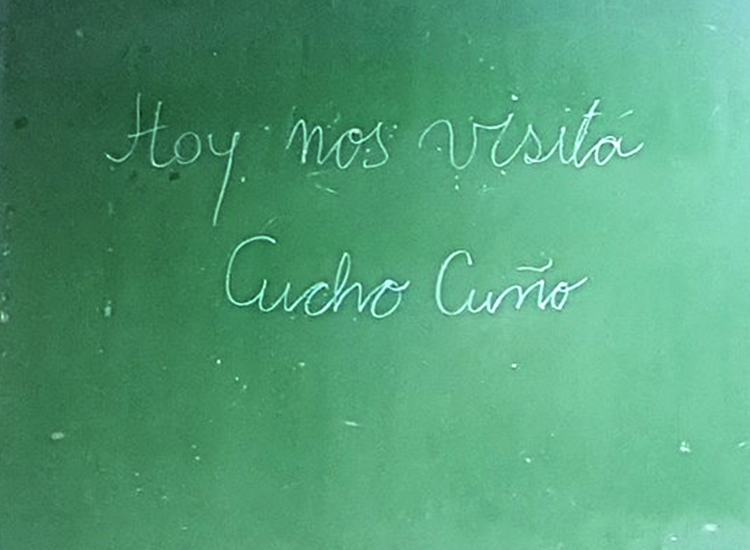 Hoy nos visitá
Cucho Cuño